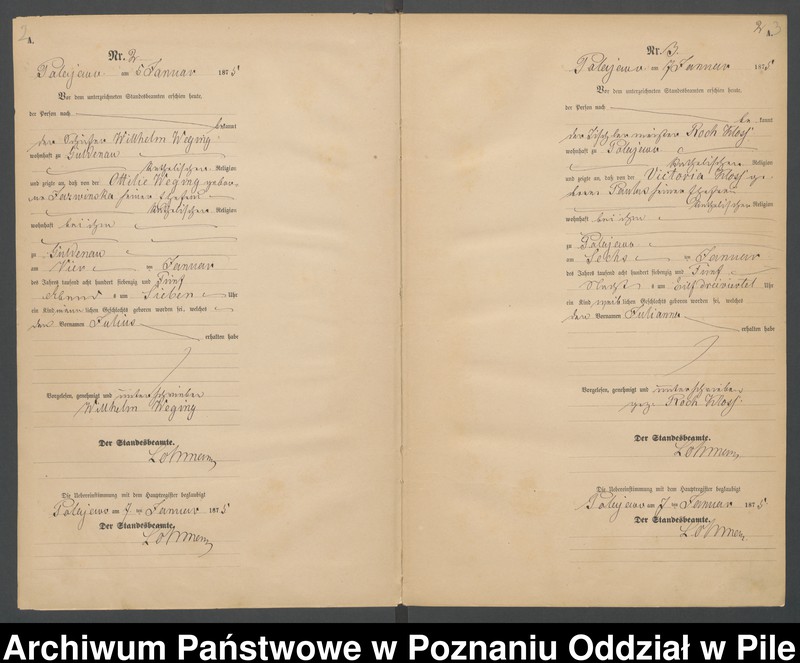 2
A.
Nr. 2
Polajewo am 5 Januar 1875
Vor dem unterzeichneten Standesbeamten erschien heute,
der Person nach
bekannt
der Schuster Willhelm Weging
wohnhaft zu Güldenau
katholischer Religion
und zeigte an, daß von der Ottilie Weging gebor-
ne seiner Ehefrau
katholischer Religion
wohnhaft bei ihm
zu Güldenau
am Vier ten Januar
des Jahres tausend acht hundert siebenzig und Fünf
Abend s um Sieben Uhr
ein Kind männ lichen Geschlechts geboren worden sei, welches
den Vornamen Julius
erhalten habe
Vorgelesen, genehmigt und unterschrieben
Willhelm Weging
Der Standesbeamte.
Die Uebereinstimmung mit dem Hauptregister beglaubigt
Polajewo am 7 ten Januar 1875
Der Standesbeamte,
2 3
A.
Nr. 3.
Polajewo am 7 Januar 1875
Vor dem unterzeichneten Standesbeamten erschien heute,
der Person nach
be kannt
der Tischlermeister Roch Kloss
wohnhaft zu Polajewo
katholischer Religion
und zeigte an, daß von der Victoria Kloss ge-
borene seiner Ehefrau
katholischer Religion
wohnhaft bei ihm
zu Polajewo
am Sechs ten Januar
des Jahres tausend acht hundert siebenzig und Fünf
um Uhr
ein Kind weib lichen Geschlechts geboren worden sei, welches
den Vornamen Julianna
erhalten habe
Vorgelesen, genehmigt und unterschrieben
gez. Roch Kloss
Der Standesbeamte.
Die Uebereinstimmung mit dem Hauptregister beglaubigt
Polajewo am 7 ten Januar 1875
Der Standesbeamte.
Archiwum Państwowe w Poznaniu Oddział w Pile